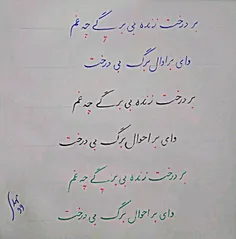 بر درخت زنده بی برگے چه غم
وای بر احوال برگ بی درخت
بر درخت زنده بی برگے چه غم
وای بر احوال برگ بی درخت
بر درخت زنده بی برگے چه غم
وای بر احوال برگ بی درخت